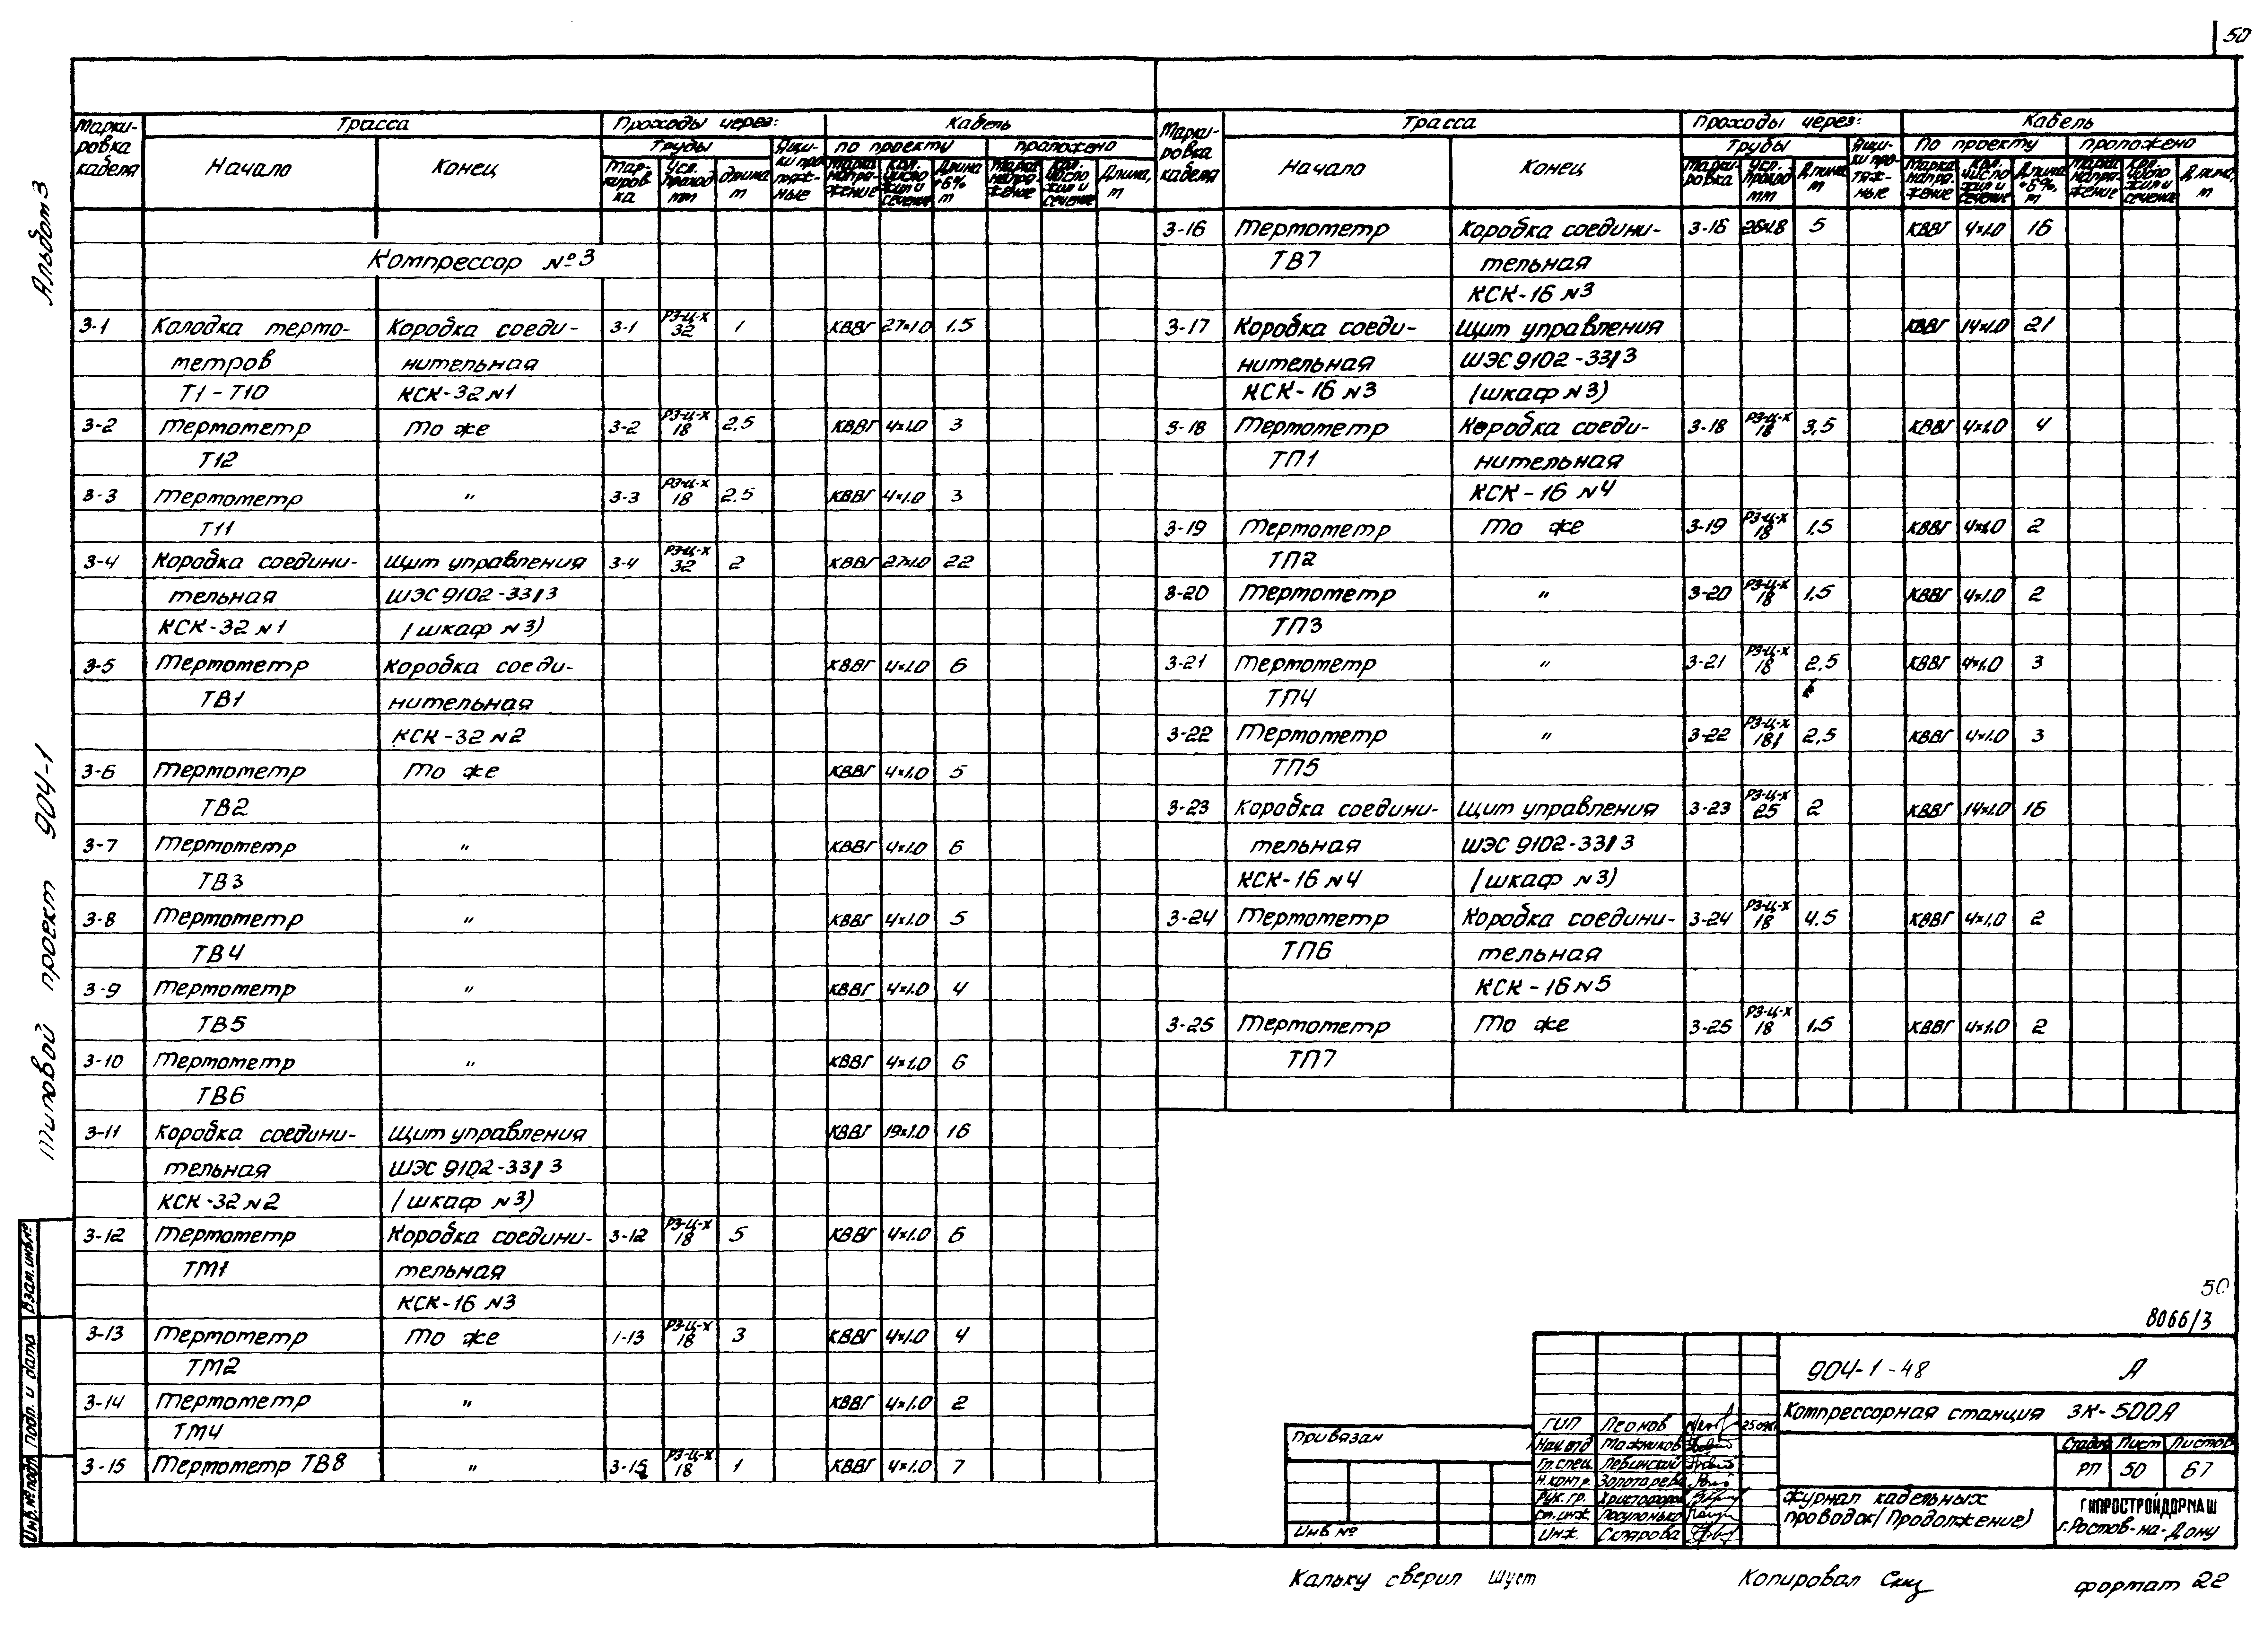 50
Альбом 3
Типовой проект 904-1
Взам. инв. №
Подп. и дата
Инв. № подл.
Марки-ровка кабеля | Трасса | Проходы через: | Кабель
Начало | Конец | Трубы | Ящи-ки про-тяж-ные | По проекту | проложено
Мар-киров-ка | Усл. проход мм | Длина м | Марка напря-жение | Кол. число жил и сечение | Длина +6% м | Марка напря-жение | Кол. число жил и сечение | Длина, м
Компрессор №3
3-1 Колодка термо- Коробка соеди- 3-1 РЗ-Ц-Х 32 1 КВВГ 27×1.0 1.5
метров нительная
Т1-Т10 КСК-32 №1
3-2 Термометр То же 3-2 РЗ-Ц-Х 18 2,5 КВВГ 4×1.0 3
Т12
3-3 Термометр " 3-3 РЗ-Ц-Х 18 2,5 КВВГ 4×1.0 3
Т11
3-4 Коробка соедини- Щит управления 3-4 РЗ-Ц-Х 32 2 КВВГ 27×1.0 22
тельная ШЭС 9102-33/3
КСК-32 №1 (шкаф №3)
3-5 Термометр Коробка соеди- КВВГ 4×1.0 6
ТВ1 нительная
КСК-32 №2
3-6 Термометр То же КВВГ 4×1.0 5
ТВ2
3-7 Термометр " КВВГ 4×1.0 6
ТВ3
3-8 Термометр " КВВГ 4×1.0 5
ТВ4
3-9 Термометр " КВВГ 4×1.0 4
ТВ5
3-10 Термометр " КВВГ 4×1.0 6
ТВ6
3-11 Коробка соедини- Щит управления КВВГ 19×1.0 16
тельная ШЭС 9102-33/3
КСК-32 №2 (шкаф №3)
3-12 Термометр Коробка соедини- 3-12 РЗ-Ц-Х 18 5 КВВГ 4×1.0 6
ТМ1 тельная
КСК-16 №3
3-13 Термометр То же 1-13 РЗ-Ц-Х 18 3 КВВГ 4×1.0 4
ТМ2
3-14 Термометр " КВВГ 4×1.0 2
ТМ4
3-15 Термометр ТВ8 " 3-15 РЗ-Ц-Х 18 1 КВВГ 4×1.0 7
Марки-ровка кабеля | Трасса | Проходы через: | Кабель
Начало | Конец | Трубы | Ящи-ки про-тяж-ные | По проекту | проложено
Марки-ровка | Усл. проход мм | Длина м | Марка напря-жение | Кол. число жил и сечение | Длина +6%, м | Марка напря-жение | Кол. число жил и сечение | Длина, м
3-16 Термометр Коробка соедини- 3-16 5 КВВГ 4×1.0 16
ТВ7 тельная
КСК-16 №3
3-17 Коробка соеди- Щит управления КВВГ 14×1.0 21
нительная ШЭС 9102-33/3
КСК-16 №3 (шкаф №3)
3-18 Термометр Коробка соеди- 3-18 РЗ-Ц-Х 18 3,5 КВВГ 4×1.0 4
ТП1 нительная
КСК-16 №4
3-19 Термометр То же 3-19 РЗ-Ц-Х 18 1.5 КВВГ 4×1.0 2
ТП2
3-20 Термометр " 3-20 РЗ-Ц-Х 18 1,5 КВВГ 4×1.0 2
ТП3
3-21 Термометр " 3-21 РЗ-Ц-Х 18 2,5 КВВГ 4×1.0 3
ТП4
3-22 Термометр " 3-22 РЗ-Ц-Х 18 2,5 КВВГ 4×1.0 3
ТП5
3-23 Коробка соедини- Щит управления 3-23 РЗ-Ц-Х 25 2 КВВГ 14×1.0 16
тельная ШЭС 9102-33/3
КСК-16 №4 (шкаф №3)
3-24 Термометр Коробка соедини- 3-24 РЗ-Ц-Х 18 4.5 КВВГ 4×1.0 2
ТП6 тельная
КСК-16 №5
3-25 Термометр То же 3-25 РЗ-Ц-Х 18 1.5 КВВГ 4×1.0 2
ТП7
50
8066/3
904-1-48 А
Компрессорная станция 3К-500А
Стадия Лист Листов
РП 50 67
Журнал кабельных
проводок (Продолжение)
ГИПРОСТРОЙДОРМАШ
г. Ростов-на-Дону
ГИП Леонов
Нач. отд Мажников
Гл. спец. Левинский
Н. контр. Золотарева
Рук. гр. Христофоров
Ст. инж.
Инж. Склярова
Привязан
Инв №
Кальку сверил Шуст
Копировал
формат 22